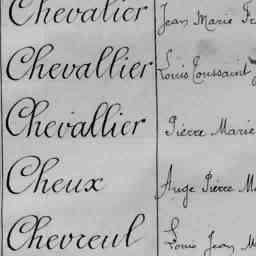 Chevalier Jean Marie Fr
Chevallier Louis Toussaint
Chevallier Pierre Marie
Cheux Ange Pierre Ma
Chevreul Louis Jean M